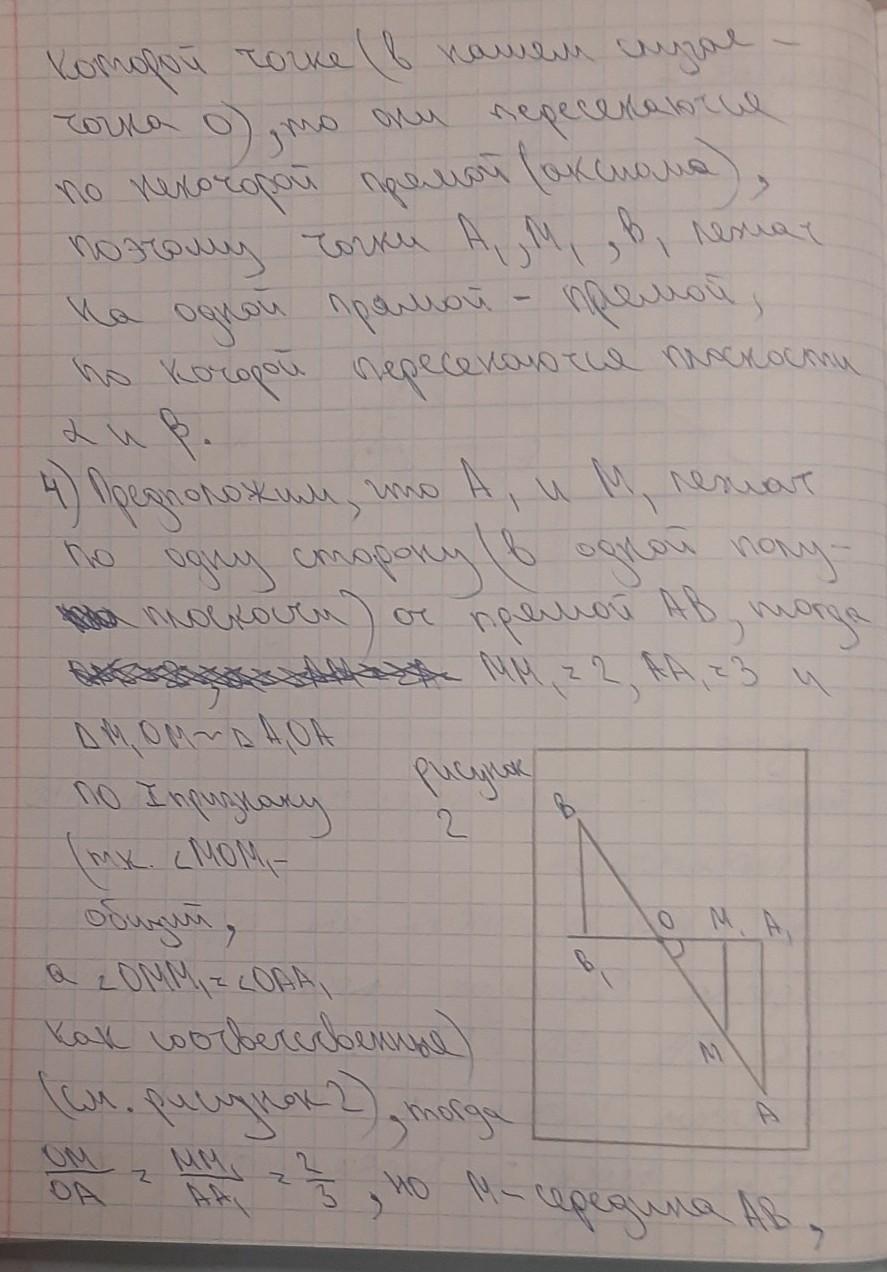 которой точке (в нашем случае –
точка O), то они пересекаются
по некоторой прямой (аксиома),
поэтому точки A₁, M₁, B₁ лежат
на одной прямой – прямой,
по которой пересекаются плоскости
α и β.
4) Предположим, что A₁ и M₁ лежат
по одну сторону (в одной полу-
плоскости) от прямой AB, тогда
MM₁ = 2, AA₁ = 3 и
△M₁OM ~ △A₁OA
по I признаку
(т.к. ∠MOM₁ –
общий,
а ∠OMM₁ = ∠OAA₁
как соответственные)
(см. рисунок 2), тогда
OM/OA = MM₁/AA₁ = 2/3, но M – середина AB,
рисунок
2
B
O M₁ A₁
B₁
M
A